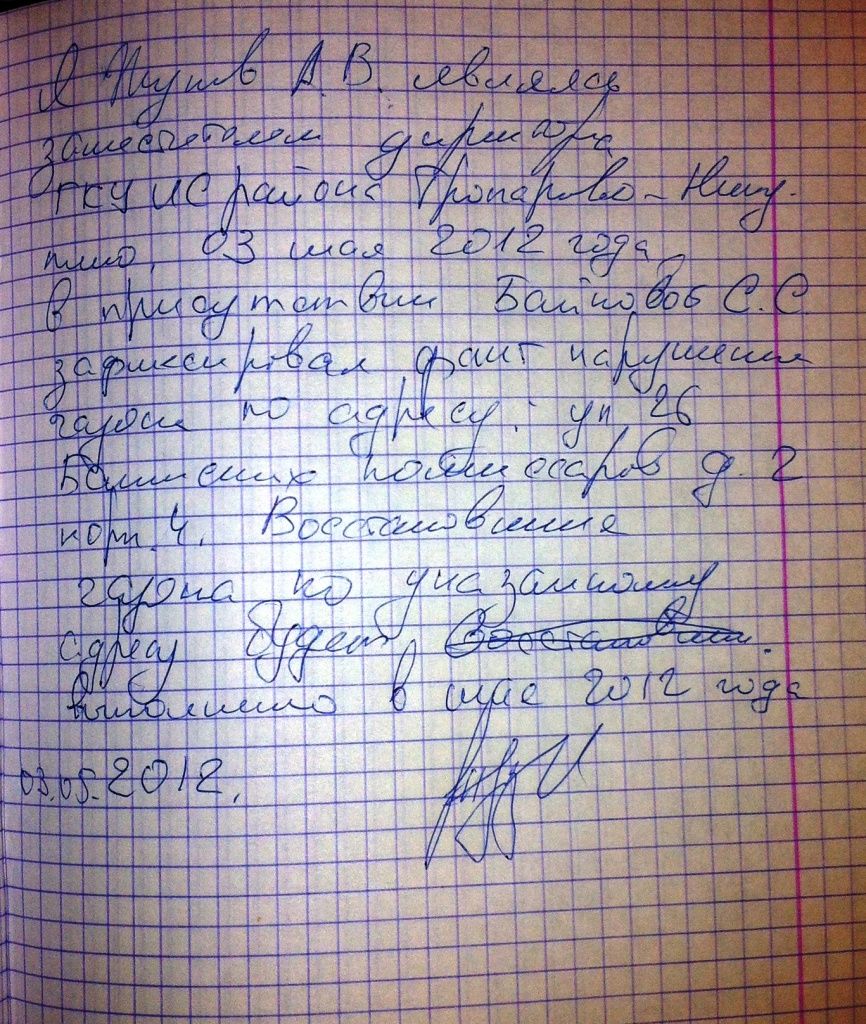 Я А.В. являясь
заместителем директора
ГКУ ИС района Тропарево-Нику-
лино, 03 мая 2012 года
в присутствии С.С.
зафиксировал факт нарушения
газона по адресу: ул 26
Бакинских комиссаров д. 2
корп. 4. Восстановление
газона по указанному
адресу будет
выполнено в мае 2012 года
03.05.2012.